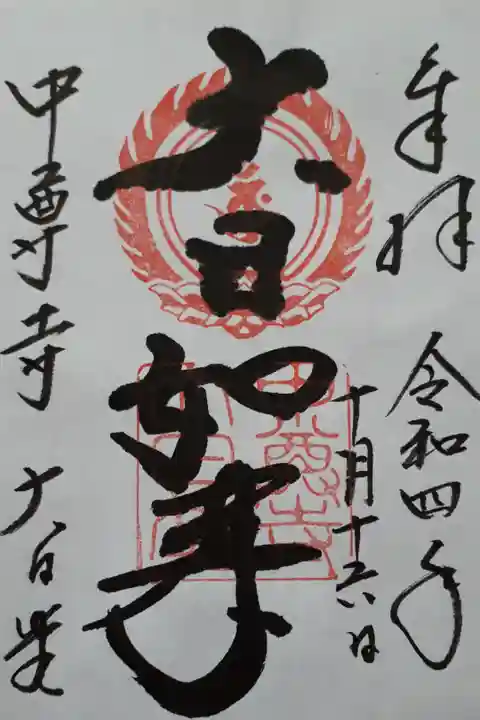 奉拝
令和四年
十月十六日
大日如来
中尊寺 大日堂